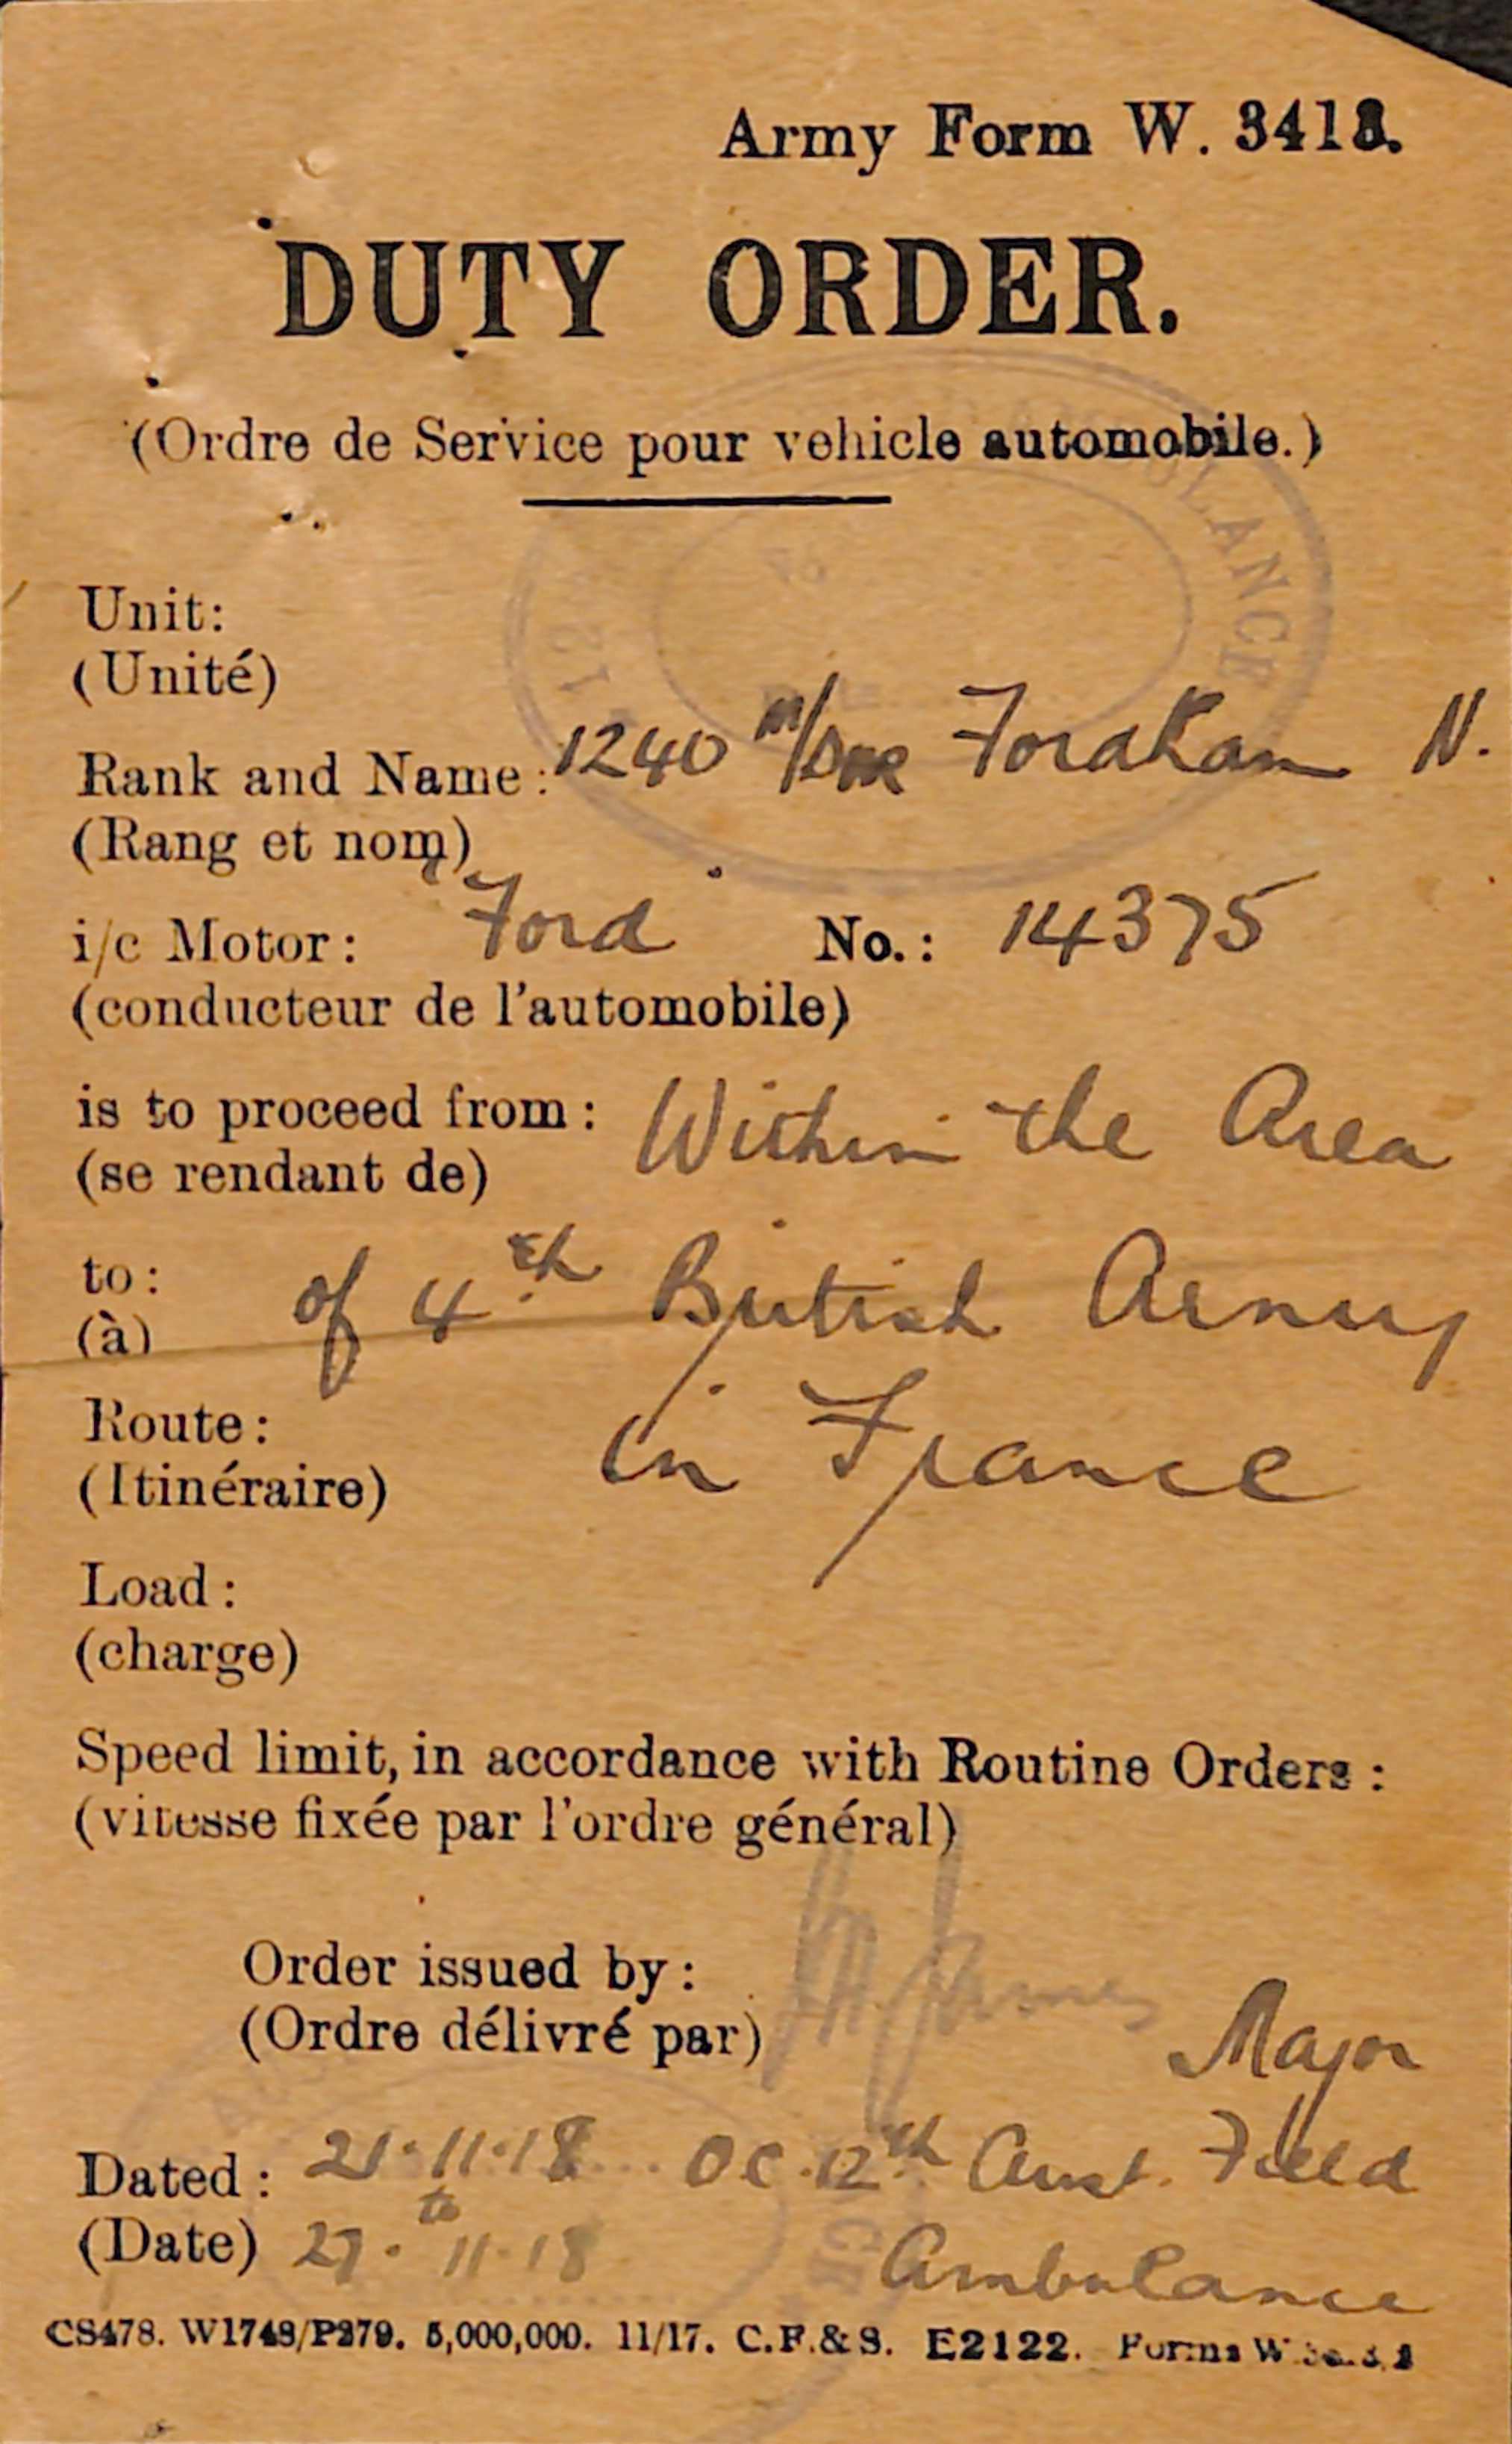 Army Form W. 3413.
DUTY ORDER.
(Ordre de Service pour vehicle automobile.)
Unit:
(Unité)
Rank and Name: 1240 m/Dvr Forakam N.
(Rang et nom)
i/c Motor: Ford No.: 14375
(conducteur de l'automobile)
is to proceed from: Within the Area
(se rendant de)
to: of 4th British Army
(à)
Route: in France
(Itinéraire)
Load:
(charge)
Speed limit, in accordance with Routine Orders:
(vitesse fixée par l'ordre général)
Order issued by: James
(Ordre délivré par) Major
Dated: 21.11.18 OC. 12th Aust. Field
to
(Date) 27.11.18 Ambulance
CS478. W1748/P379. 5,000,000. 11/17. C.F.&S. E2122. Forms W